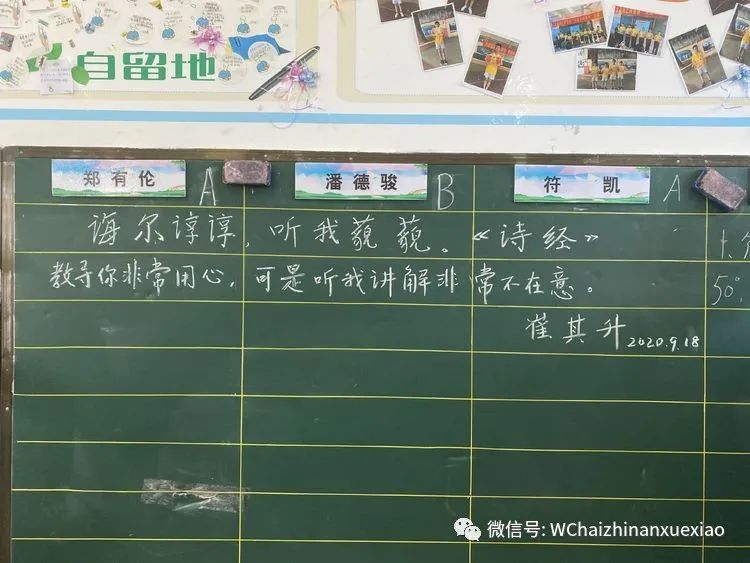 自留地
郑有伦
潘德骏
符凯
A
B
A
诲尔谆谆,听我藐藐。《诗经》
教导你非常用心,可是听我讲解非常不在意。
50°
崔其升 2020.9.18
微信号: WChaizhinanxuexiao